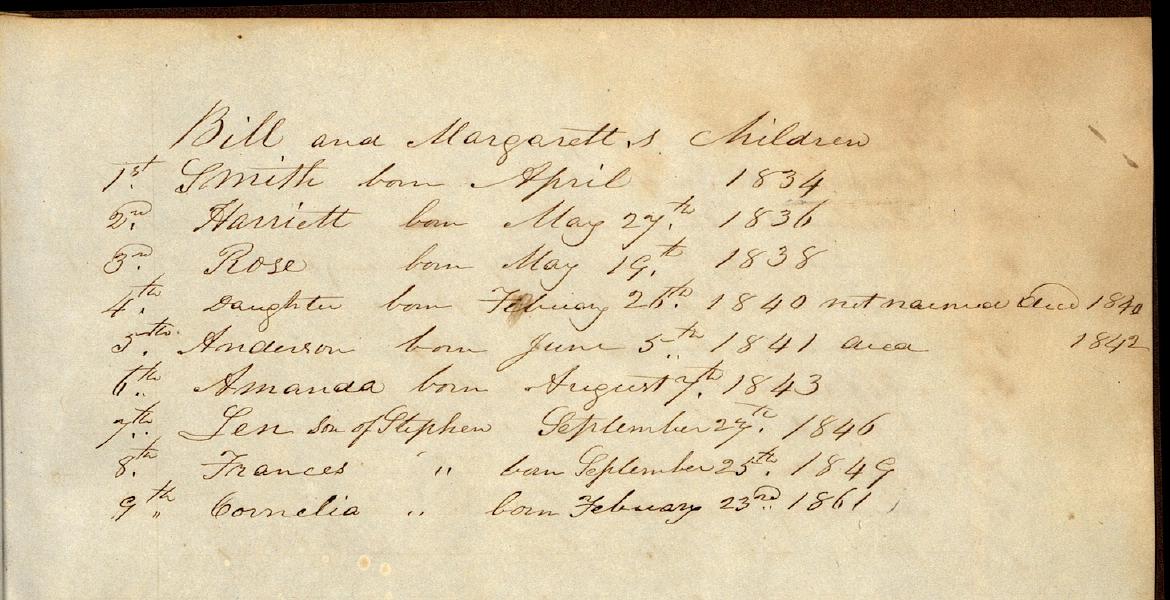 Bill and Margarett,s Children
1st. Smith born April 1834
2nd. Harriett born May 27th. 1836
3rd. Rose born May 19th. 1838
4th. Daughter born Febuary 26th. 1840 not named died 1840
5th. Anderson born June 5th 1841 died 1842
6th. Amanda born August 7th. 1843
7th. Len son of Stephen September 27th. 1846
8th. Frances " born September 25th. 1849
9th " Cornelia " born Febuary 23rd. 1861